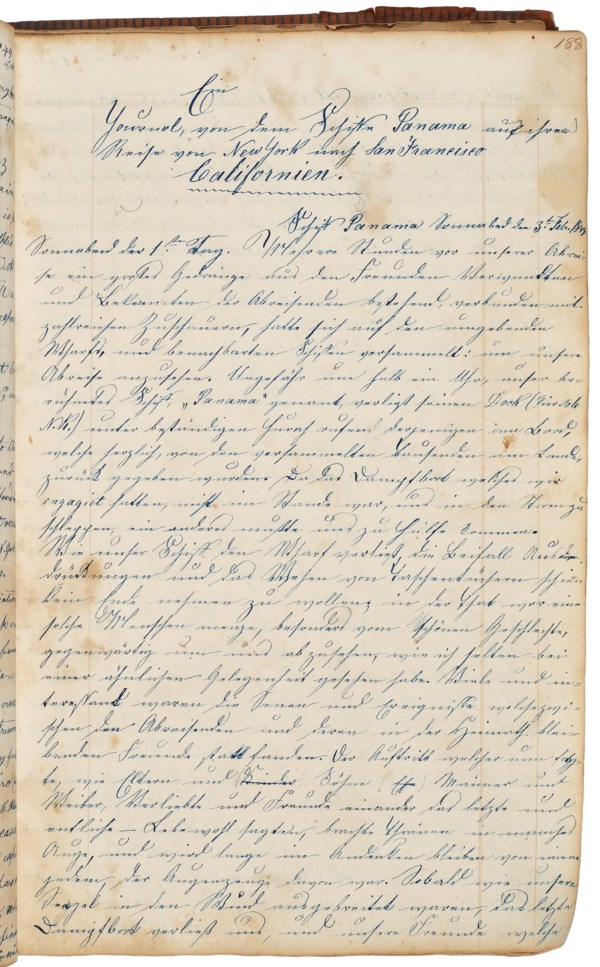 188
Ein
Journal, von dem Schiffe Panama auf ihrer
Reise von New York nach San Francisco
Californien.
Schiff Panama Sonnabend den 3t. Feb.
Sonnabend der 1ste Tag. Mehrere Stunden vor unserer Abrei-
se ein großes Gedränge aus den Freunden Verwandten
und Bekannten der Abreisenden bestehend verbunden mit
zahlreichen Zuschauern, hatte sich auf den umgebenden
Wharfs, und benachbarten Schiffen versammelt: um unsere
Abreise anzusehen. Ungefähr um halb ein Uhr, unser be-
rühmtes Schiff, „Panama" genannt, verließ seinen Dock (Pier
N.R.) unter beständigen Hurah rufens derjenigen am Bord,
welche herzlich, von den versammelten Tausenden am Lande,
zurück gegeben wurden. Da das Dampfboot welches wir
engagirt hatten, nicht im Stande war, uns in den Strom zu
schleppen, ein anderes mußte uns zu Hülfe kommen.
Wie unser Schiff den Wharf verließ, die Beifall Aus
drückungen und das Wehen von Taschentüchern schien
kein Ende nehmen zu wollen; in der That war eine
solche Menschen menge, besonders vom schönen Geschlechte,
gegenwärtig um uns abzusehen, wie ich selten bei
einer ähnlichen Gelegenheit gesehen habe. Viele und in-
teressant waren die Senen und Ereignisse welche zwi-
schen den Abreisenden und deren in der Heimath blei-
benden Freunde statt fanden. Der Auftritt welcher nun folg-
te, wie Eltern und Kinder Söhn Männer und
Weiber, Verliebte und Freunde einander das letzte und
entliche – Lebewohl sagten, brachte Thränen in manches
Auge, und wird lange im Andenken bleiben von einem
jedem, der Augenzeuge davon war. Sobald wie unsere
Seegel in den Wind ausgebreitet waren, das letzte
Dampfboot verließ uns, und unsere Freunde welche